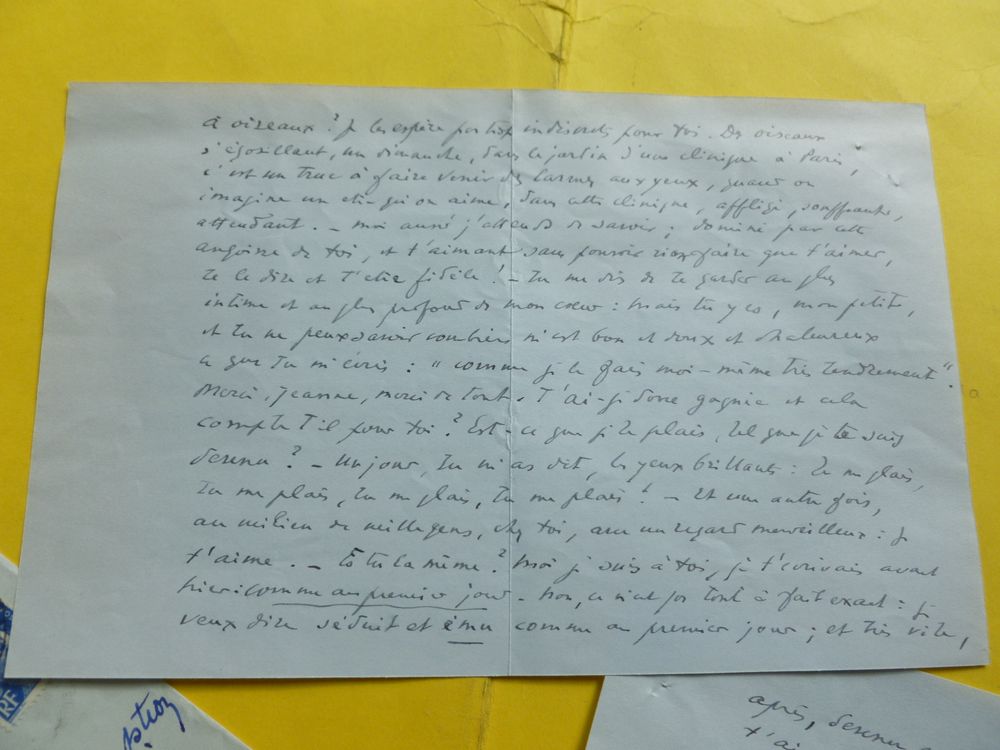 à oiseaux ? Je les espère pas trop indiscrets pour toi. Des oiseaux
s'égosillant, un dimanche, dans le jardin d'une clinique à Paris,
c'est un truc à faire venir des larmes aux yeux, quand on
imagine un être qu'on aime, dans cette clinique, affligé, souffrante,
attendant. – moi aussi j'attends de savoir ; dominé par cette
angoisse de toi, et t'aimant sans pouvoir rien faire que t'aimer,
te le dire et t'être fidèle ! – tu me dis de te garder au plus
intime et au plus profond de mon cœur : mais tu y es, mon petit,
et tu ne peux savoir combien m'est bon et doux et chaleureux
ce que tu m'écris : "comme je le fais moi-même très tendrement".
Merci, Jeanne, merci de tout. T'ai-je donc gagnée et cela
compte t'il pour toi ? Est-ce que je te plais, tel que je te suis
devenu ? – Un jour, tu m'as dit, les yeux brillants : Tu me plais,
tu me plais, tu me plais, tu me plais ! – Et une autre fois,
au milieu de mille gens, chez toi, avec un regard merveilleux : je
t'aime. – Es tu la même ? Moi je suis à toi, je t'écrivais avant
hier : comme au premier jour – Non, ce n'est pas tout à fait exact : je
veux dire séduit et ému comme au premier jour ; et très vite,
RF
après, devenu
t'ai